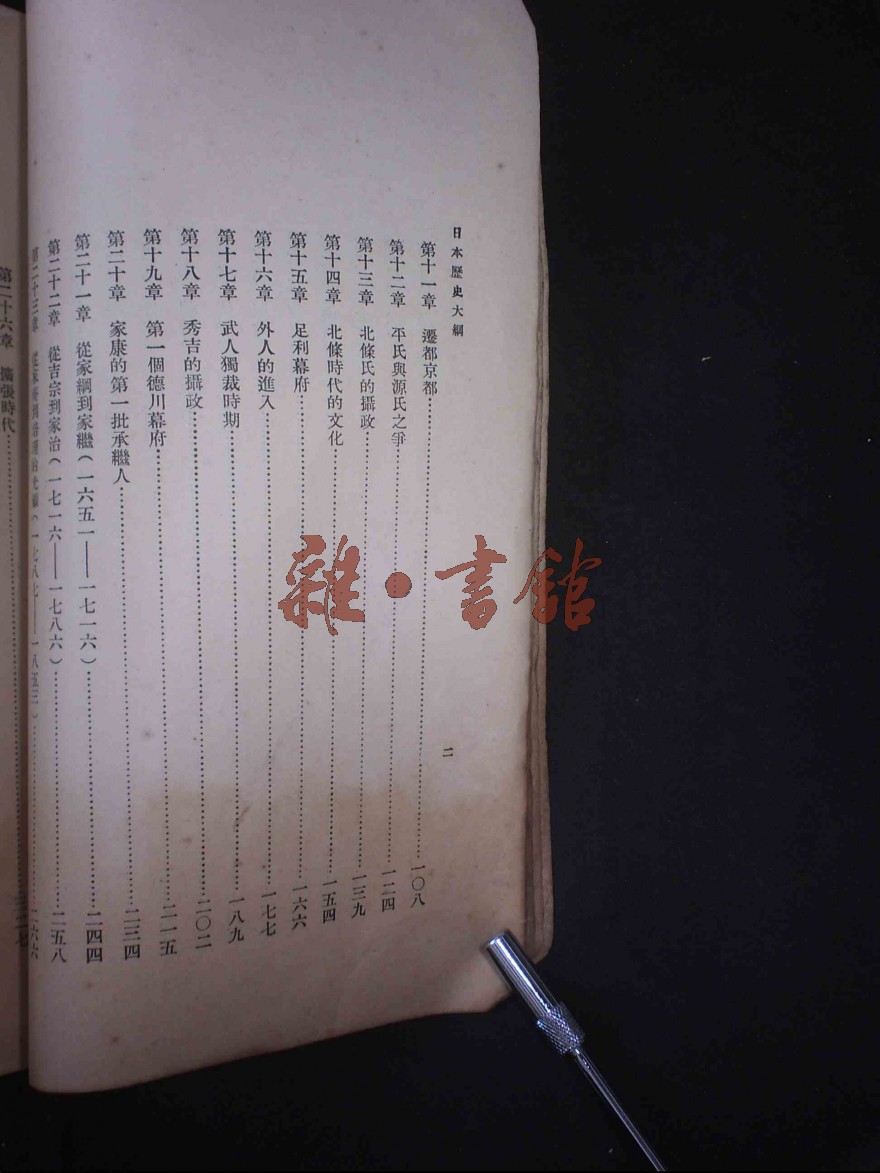 日本歷史大綱
二
第十一章 遷都京都……一〇八
第十二章 平氏與源氏之爭……一二四
第十三章 北條氏的攝政……一三九
第十四章 北條時代的文化……一五四
第十五章 足利幕府……一六六
第十六章 外人的進入……一七七
第十七章 武人獨裁時期……一八九
第十八章 秀吉的攝政……二〇二
第十九章 第一個德川幕府……二一五
第二十章 家康的第一批承繼人……二三四
第二十一章 從家綱到家繼(一六五一——一七一六)……二四四
第二十二章 從吉宗到家治(一七一六——一七八六)……二五八
第二十三章 從家齊到(一七八七——一八五三)……二六六
第二十六章 擴張時代……三二七
雜·書館